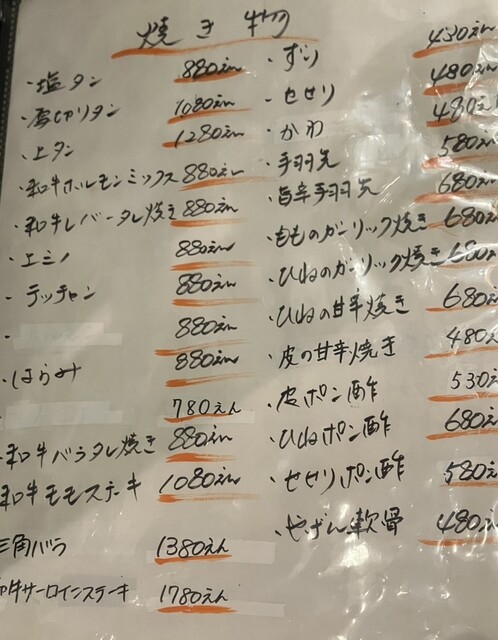 焼き物
・塩タン 880えん
・厚切りタン 1080えん
・上タン 1280えん
・和牛ホルモンミックス 880えん
・和牛レバータレ焼き 880えん
・上ミノ 880えん
・テッチャン 880えん
・ 880えん
・はらみ 880えん
780えん
和牛バラタレ焼き 880えん
和牛モモステーキ 1080えん
三角バラ 1380えん
和牛サーロインステーキ 1780えん
・ずり 430えん
・せせり 480えん
・かわ 480え
・手羽先 580えん
・旨辛手羽先 680えん
・もものガーリック焼き 680えん
・ひねのガーリック焼き 680えん
・ひねの甘辛焼き 680えん
・皮の甘辛焼き 480えん
・皮ポン酢 530え
・ひねポン酢 680えん
・せせりポン酢 580えん
・やげん軟骨 480えん